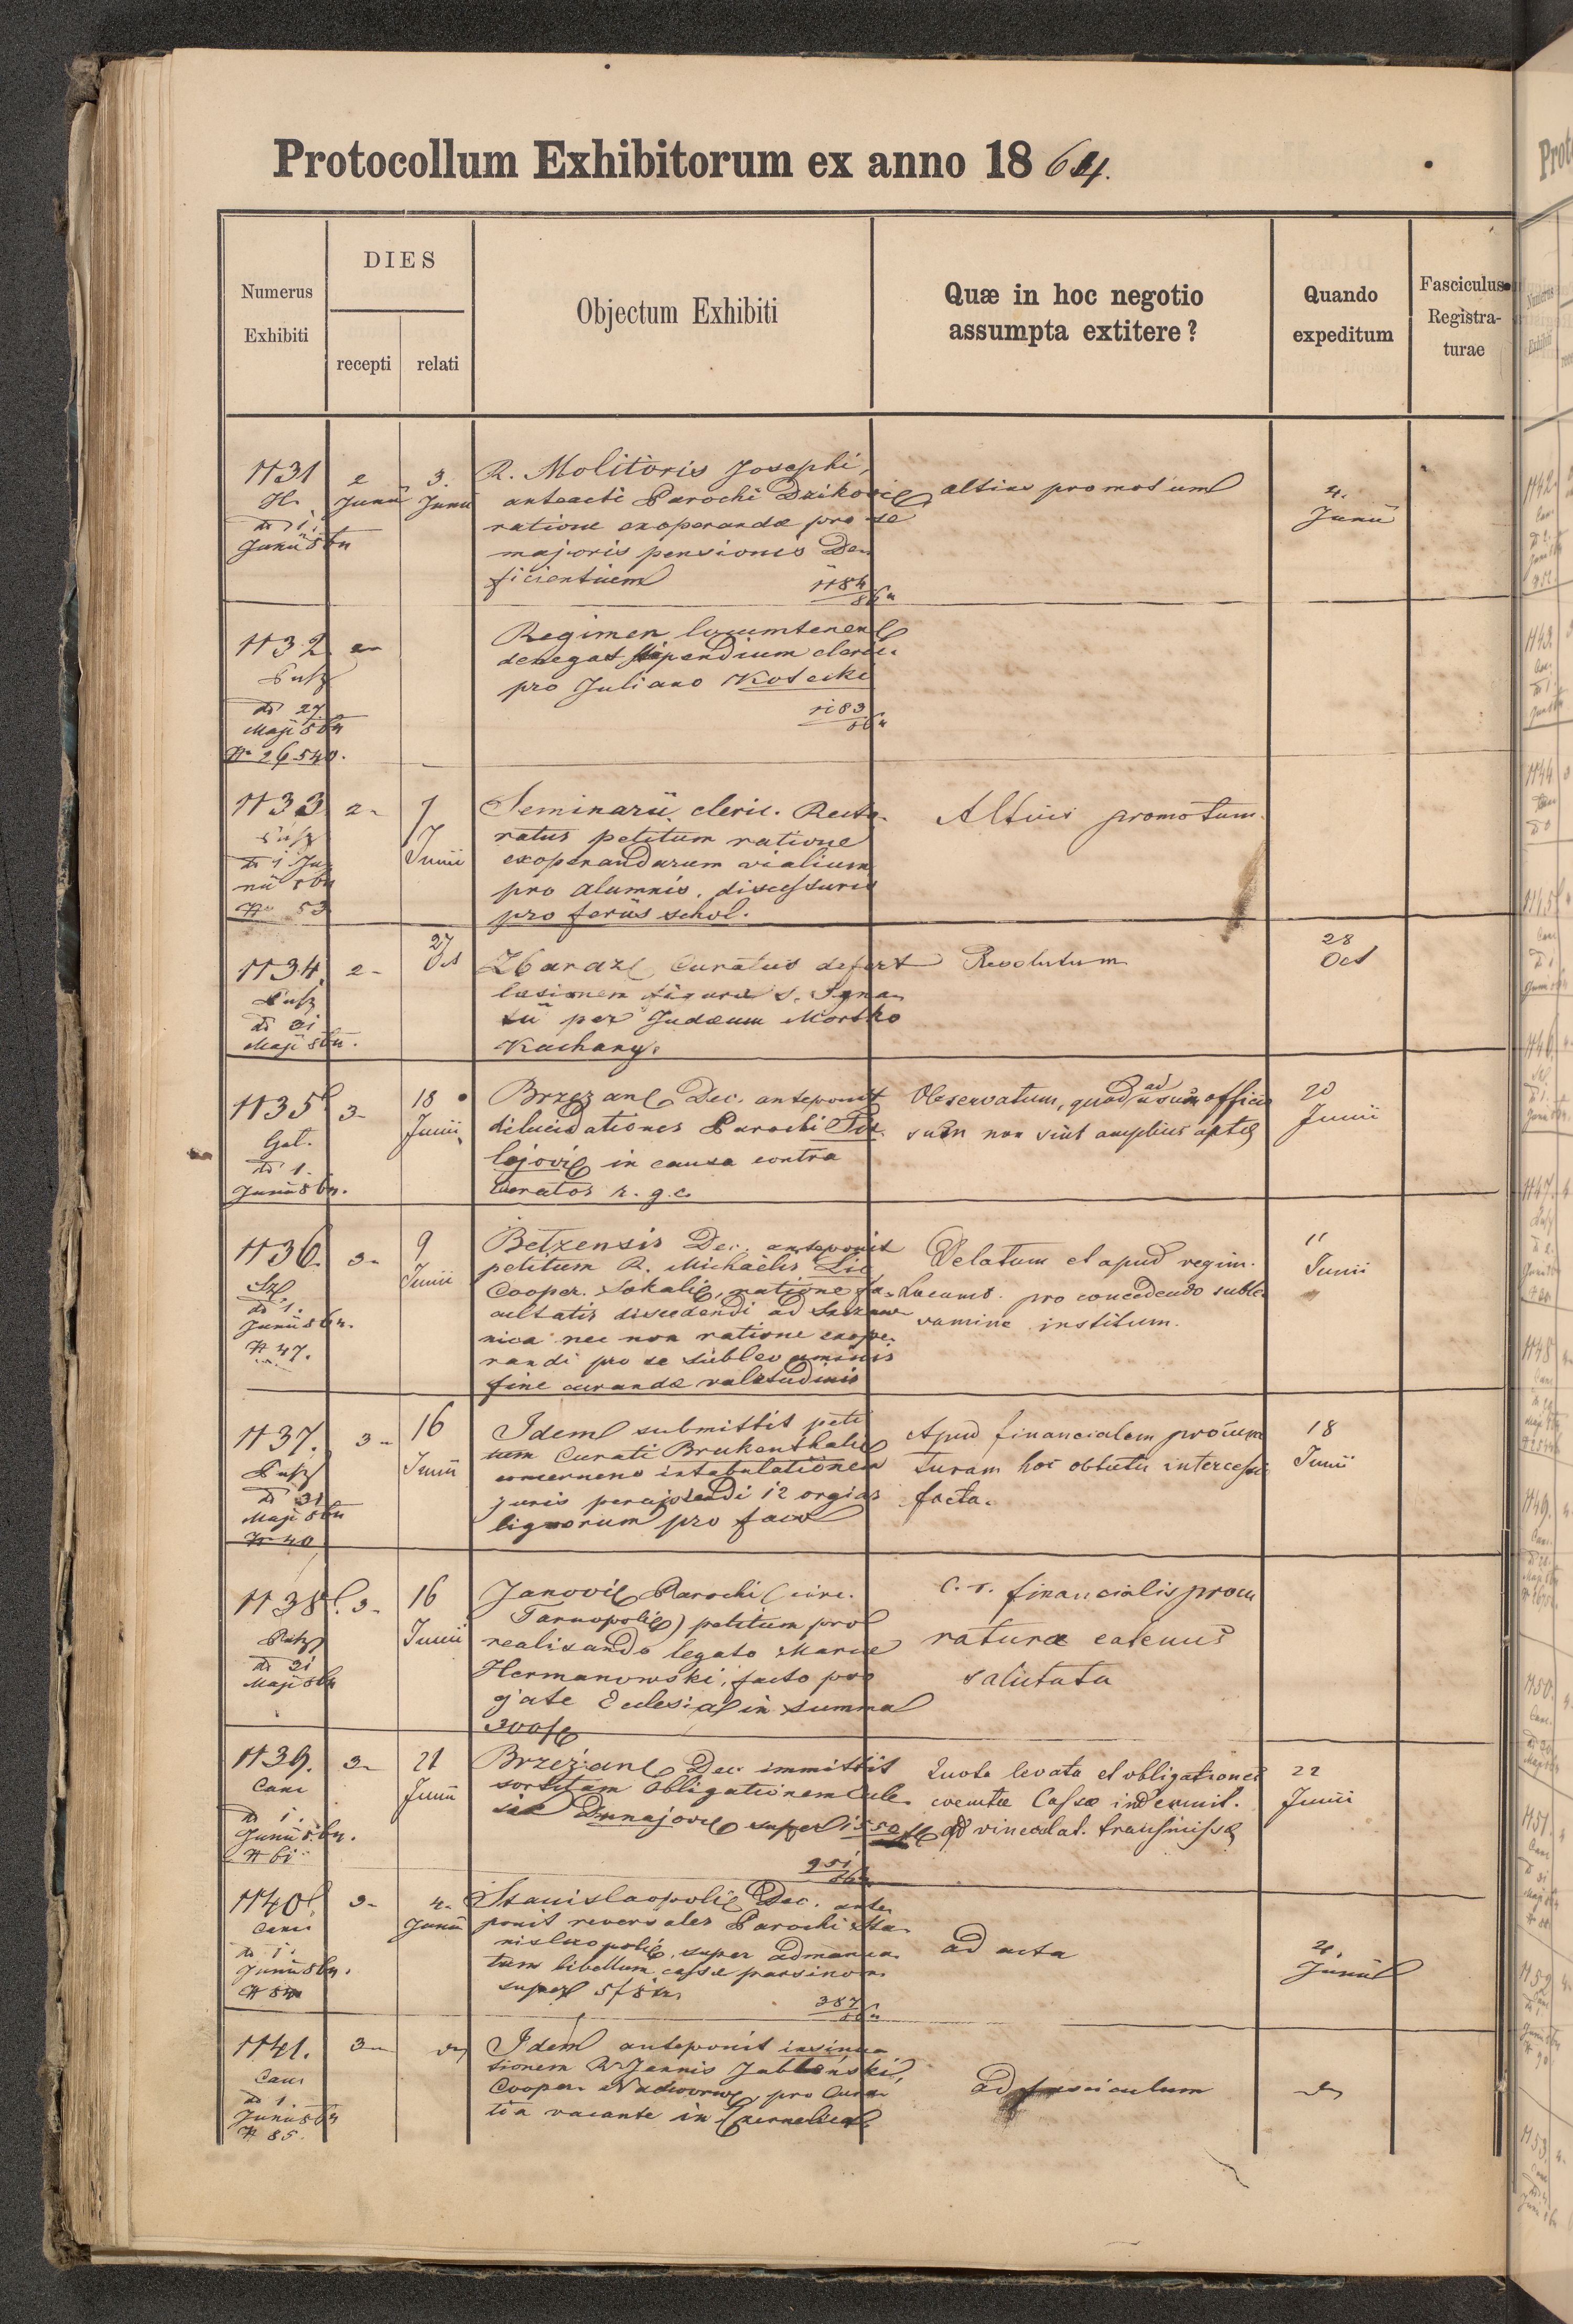 Protocollum Exhibitorum ex anno 1864.
Numerus Exhibiti
DIES
recepti
relati
Objectum Exhibiti
Quæ in hoc negotio assumpta extitere?
Quando expeditum
Fasciculus Registraturae
1131
de 1.
Junii 864
2 Junii
3. Junii
R. Molitoris Josephi,
anteacti Parochi Dzikovic
ratione exoperandæ pro se
majoris pensionis De
ficientium
1184
864
altius promotum
4. Junii
1132
de 27
Maji 864
N 26540.
2
Regimen locumtenent
denegat stipendium cleric.
pro Juliano Kotecki
1183
864
1133
de 1 Ju
nii 864
N 53
2
7 Junii
Seminarii cleric. Recto
ratus petitum ratione
exoperandarum vialium
pro alumnis discessuris
pro feriis schol.
Altius promotum.
1134
de 31
Maji 864.
2
27 Oct
Zbaraz Curatus defert
læsionem figuræ S. Igna
tii per Judæum Moszko
Kachany.
Resolutum
28 Oct
1135
de 1.
Junii 864.
3
18 Junii
Brzezan Dec. anteponit
dilucidationes Parochi
in causa contra
curatos r. g. c.
Observatum, quod ad usum offici
suem non sint amplius apta
20 Junii
1136.
de 1.
Junii 864.
N 47.
3
9 Junii
Betzensis Dec. anteponit
petitum R. Michaelis Lic
Cooper. Sokalic, ratione fa
cultatis discedendi ad Szczaw
nica nec non ratione exope
randi pro se sublevaminis
fine curandæ valetudinis
Delatum et apud regim.
Locumt. pro concedendo suble
vamine institum.
11 Junii
1137.
de 31
Maji 864
N 40
3
16 Junii
Idem submittit peti
tum Curati Brukenthalic
concernens intabulationem
juris percipiendi 12 orgias
lignorum pro foco
Apud financialem procura
turam hoc obtutu intercessio
facta.
18 Junii
1138
de 31
Maji 864
3
16 Junii
Janovic Parochi (circ.
Tarnopolic) petitum pro
realisando legato Mariæ
Hermanowski, facto pro
g'ate Ecclesia in summa
300 f
C. r. financialis procu
ratura eatenus
salutata
1139.
Canc
de 1.
Junii 864.
N 61
3
21 Junii
Brzezan Dec. immittit
sortitam obligationem Eccle
siæ Dunajovic super 1550 f
951
864
Quota levata et obligationes
eventæ Cassæ indemnit.
ad vinculat. transmissa
22 Junii
1140
Canc
de 1.
Junii 864.
N 84
3
4. Junii
Stanislaopolic Dec. ante
ponit reversales Parochi Sta
nislaopolic. super admanua
tum libellum cassæ parsimon.
super 5 f 8 kr
387
864
ad acta
4. Junii
1141.
Canc
de 1.
Junii 864
N 85.
3
Idem anteponit insinua
tionem R. Joannis Jablonski,
Cooper. Nadworn, pro Cura
tia vacante in Czernelica
ad fasciculum